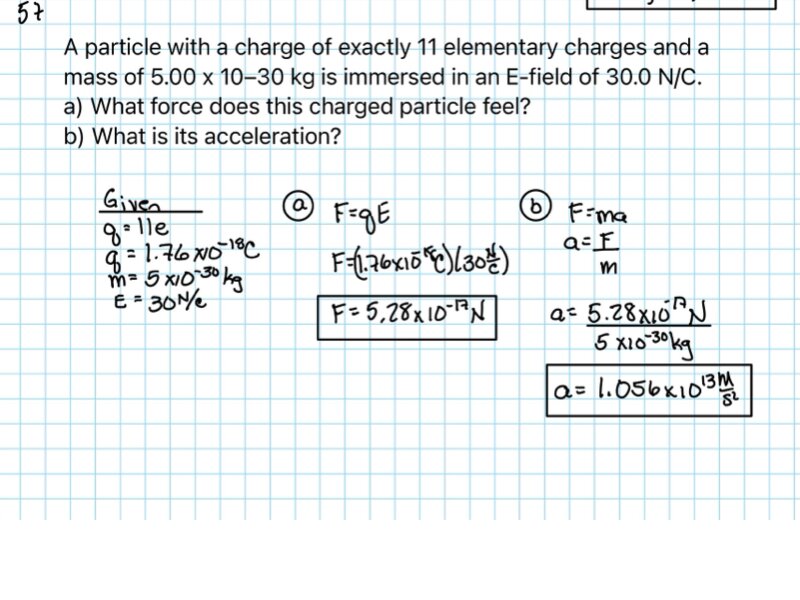 57
A particle with a charge of exactly 11 elementary charges and a
mass of 5.00 x 10–30 kg is immersed in an E-field of 30.0 N/C.
a) What force does this charged particle feel?
b) What is its acceleration?
Given
q = 11e
q = 1.76 x10^-18 C
m = 5 x10^-30 kg
E = 30 N/c
a
F=qE
F=(1.76x10^-18 C)(30 N/C)
F= 5,28x10^-17 N
b
F=ma
a= F/m
a= 5.28x10^-17 N / 5 x10^-30 kg
a= 1.056x10^13 m/s²